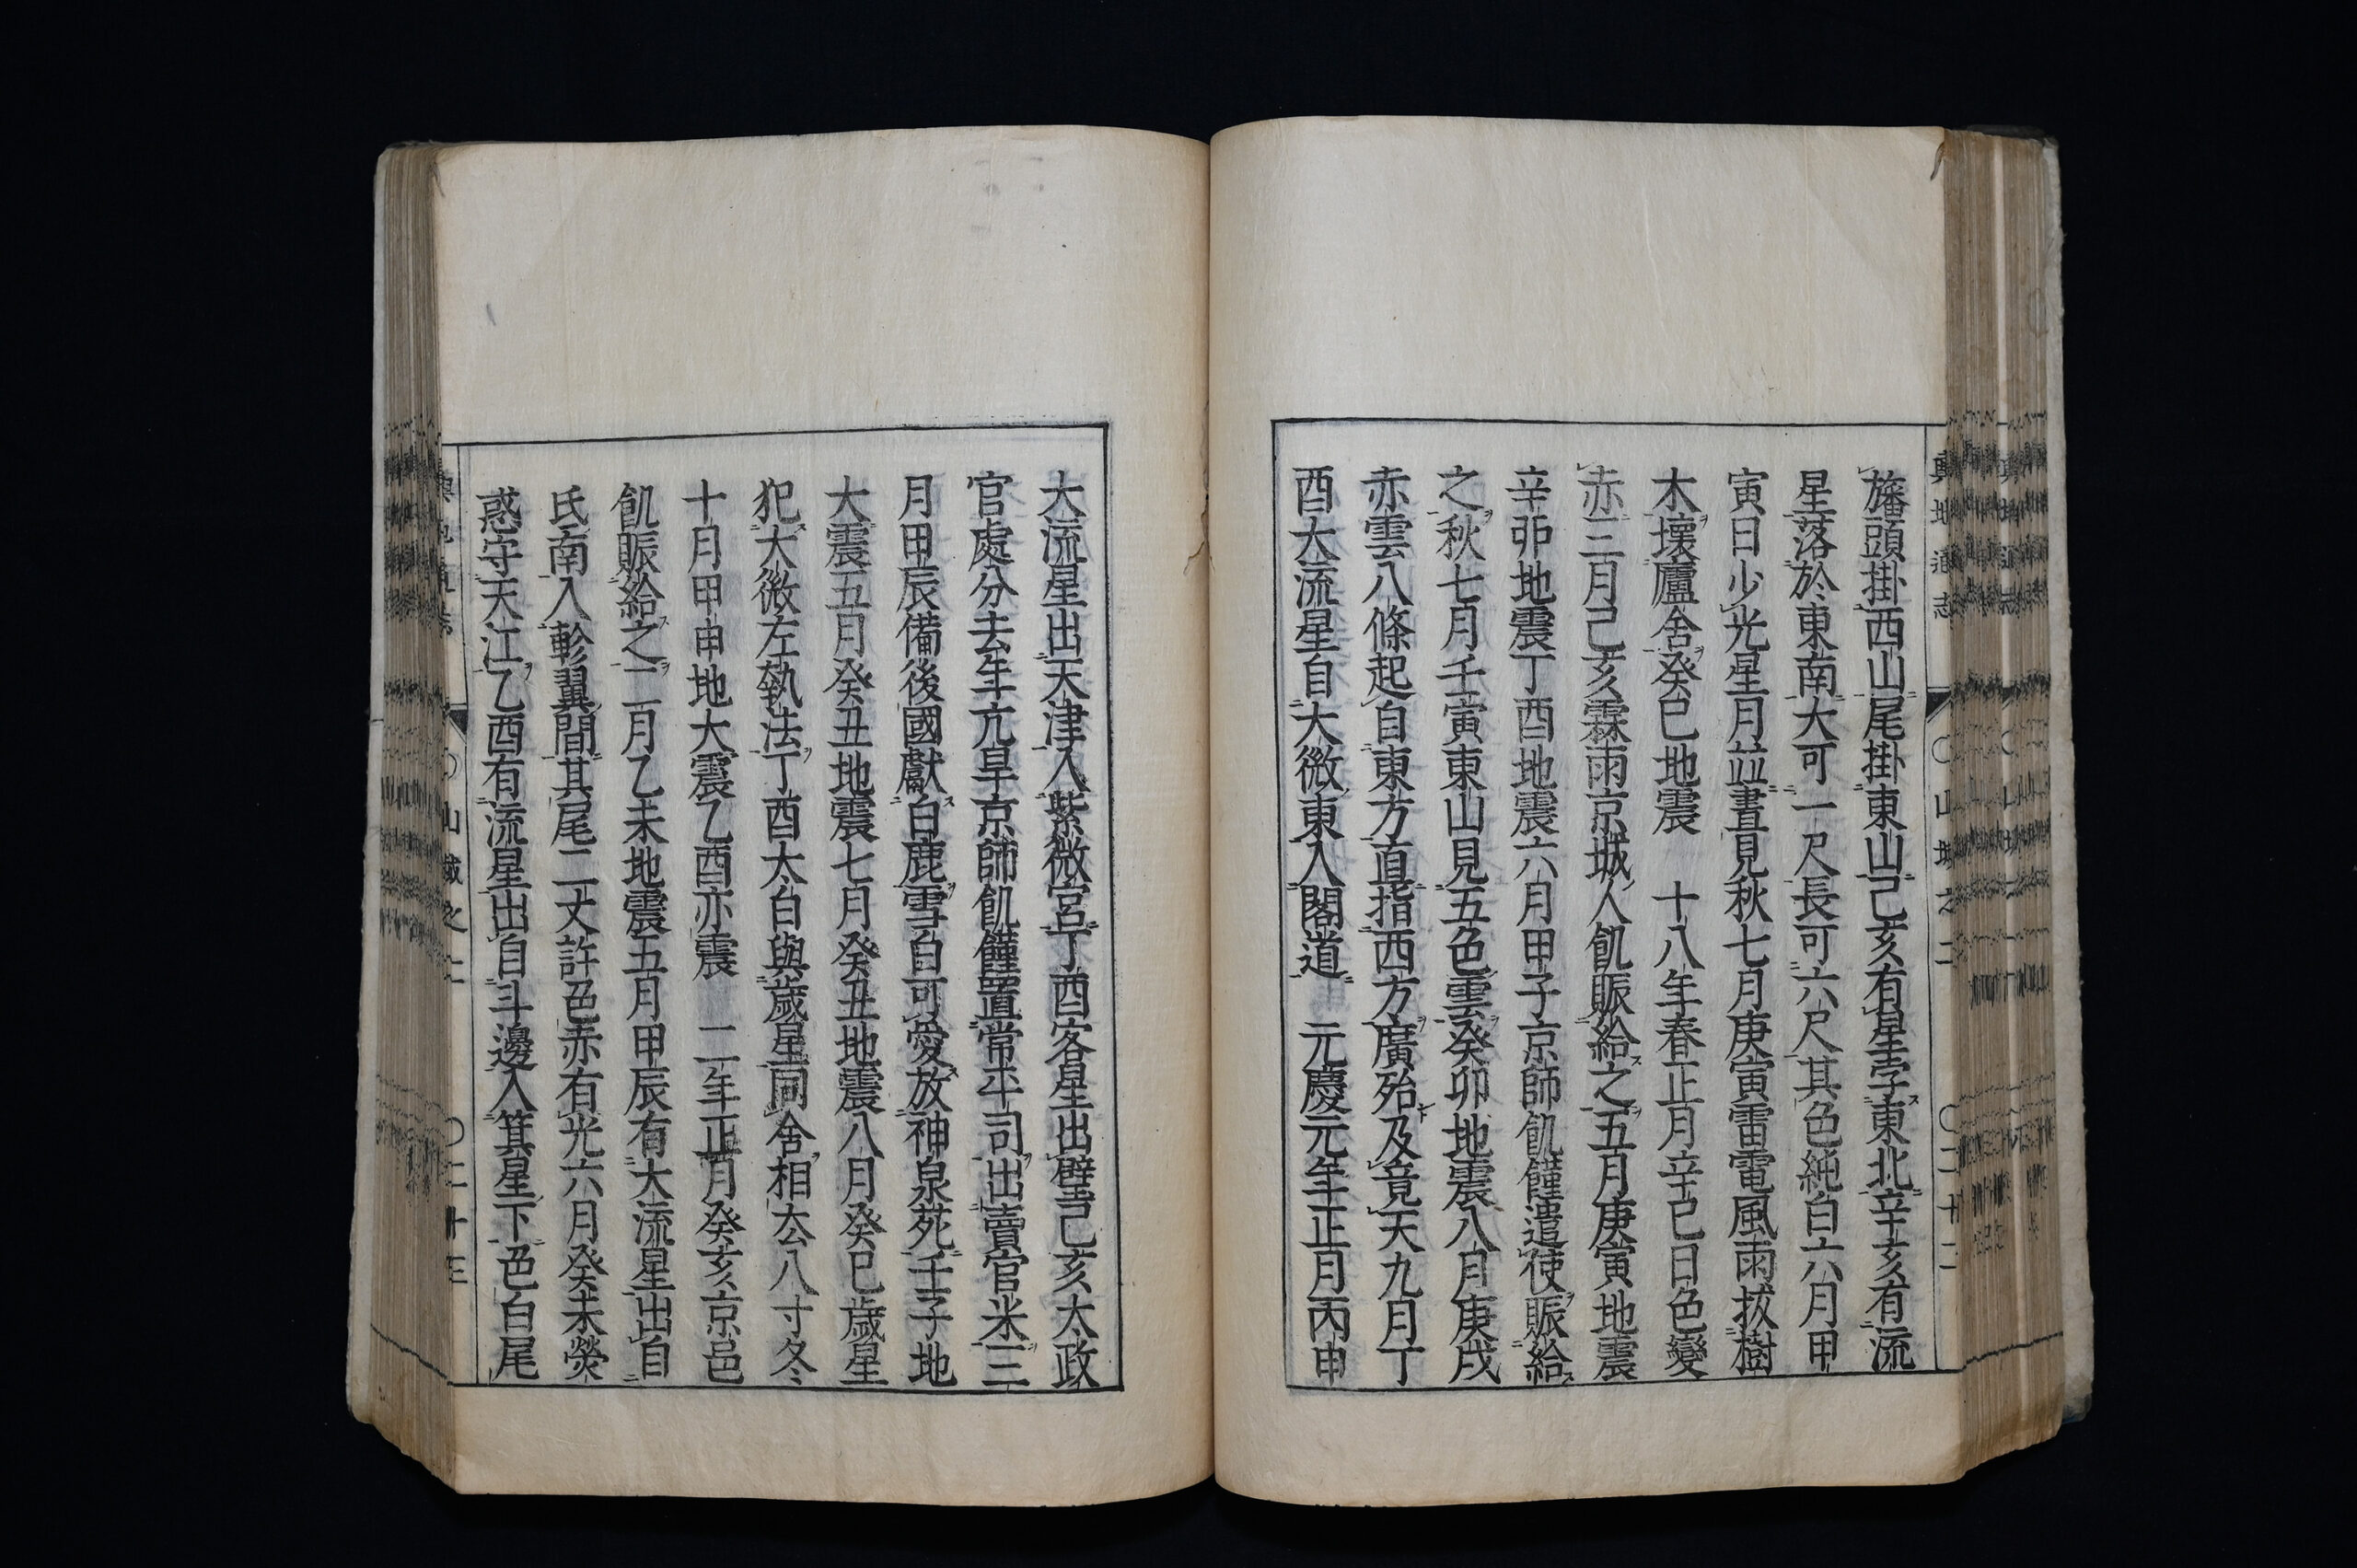 旛頭掛西山尾掛東山己亥有星孛東北辛亥有流
星落於東南大可一尺長可六尺其色純白六月甲
寅日少光星月並晝見秋七月庚寅雷電風雨拔樹
木壞廬舍癸巳地震　十八年春正月辛巳日色變
赤三月己亥霖雨京城人飢賑給之五月庚寅地震
辛卯地震丁酉地震六月甲子京師飢饉遣使賑給
之秋七月壬寅東山見五色雲癸卯地震八月庚戌
赤雲八條起自東方直指西方廣殆及竟天九月丁
酉大流星自大微東入閣道　元慶元年正月丙申
大流星出天津入紫微宮丁酉客星出壁己亥大政
官處分去年亢旱京師飢饉置常平司出賣官米三
月甲辰備後國獻白鹿雪白可愛放神泉苑壬子地
大震五月癸丑地震七月癸丑地震八月癸巳歲星
犯大微左執法丁酉太白與歲星同舍相去八寸冬
十月甲申地大震乙酉亦震　二年正月癸亥京邑
飢賑給之二月乙未地震五月甲辰有大流星出自
氐南入軫翼間其尾二丈許色赤有光六月癸未熒
惑守天江乙酉有流星出自斗邊入箕星下色白尾